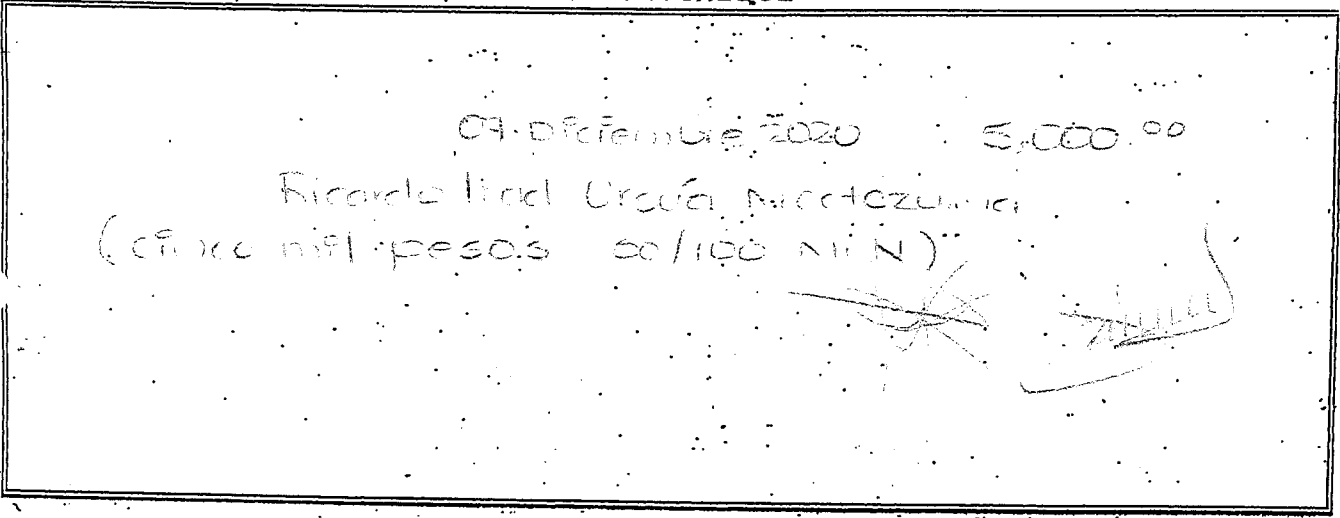 07 Diciembre 2020 5,000.00
Ricardo Urzúa Moctezuma
(cinco mil pesos 00/100 M.N)